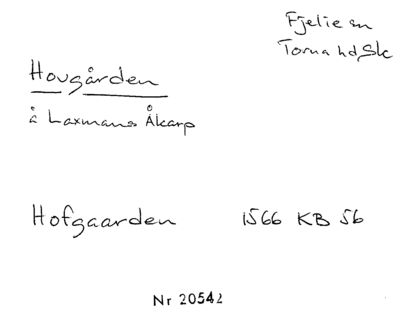 Fjelie sn
Torna hd, Sk
Hovgården
å Laxmans Åkarp
Hofgaarden 1566 KB 56
Nr 20542